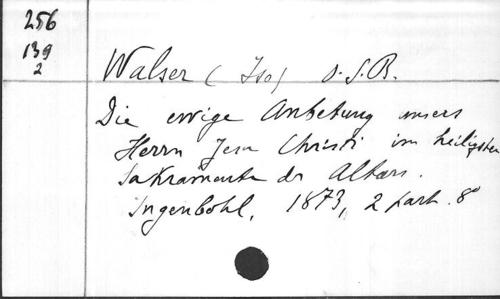 256
139
2
Walser (Iso) O.S.B.
Die ewige Anbetung unsers
Herrn Jesu Christi im heiligsten
Sakramente des Altars.
Ingenbohl, 1873, 2 part. 8°